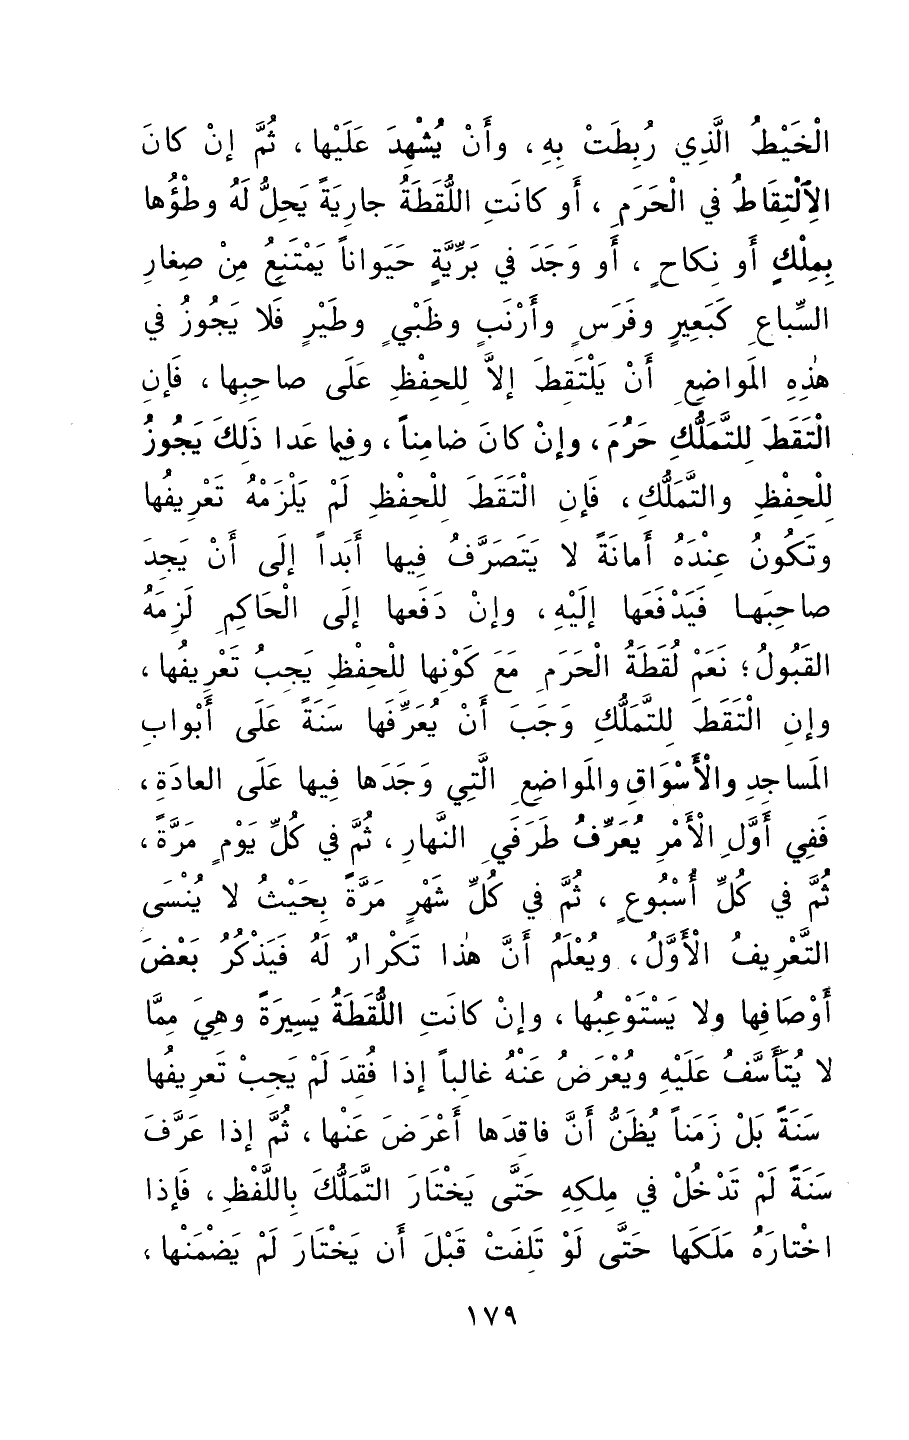 الْخَيْطُ الَّذِي رُبِطَتْ بِهِ، وأَنْ يُشْهِدَ عَلَيْها، ثُمَّ إنْ كانَ
الِالْتِقَاطُ في الْحَرَمِ، أَو كانَتِ اللُّقَطَةُ جارِيَةً يَحِلُّ لَهُ وطْؤُها
بِمِلْكٍ أَو نِكاحٍ، أَو وَجَدَ في بَرِّيَّةٍ حَيَواناً يَمْتَنِعُ مِنْ صِغارِ
السِّباعِ كَبَعِيرٍ وفَرَسٍ وأَرْنَبٍ وظَبْيٍ وطَيْرٍ فَلا يَجُوزُ في
هٰذِهِ المَواضِعِ أَنْ يَلْتَقِطَ إلاَّ لِلحِفْظِ عَلَى صاحِبِها، فَإنِ
الْتَقَطَ لِلتَّمَلُّكِ حَرُمَ، وإنْ كانَ ضامِناً، وفِيما عَدا ذَلِكَ يَجُوزُ
لِلْحِفْظِ والتَّمَلُّكِ، فَإنِ الْتَقَطَ لِلْحِفْظِ لَمْ يَلْزَمْهُ تَعْرِيفُها
وتَكُونُ عِنْدَهُ أَمانَةً لا يَتَصَرَّفُ فِيها أَبَداً إلَى أَنْ يَجِدَ
صاحِبَها فَيَدْفَعَها إلَيْهِ، وإنْ دَفَعها إلَى الْحَاكِمِ لَزِمَهُ
القَبُولُ؛ نَعَمْ لُقَطَةُ الْحَرَمِ مَعَ كَوْنِها لِلْحِفْظِ يَجِبُ تَعْرِيفُها،
وإنِ الْتَقَطَ لِلتَّمَلُّكِ وَجَبَ أَنْ يُعَرِّفَها سَنَةً عَلَى أَبْوابِ
المَساجِدِ والْأَسْوَاقِ والمَواضِعِ الَّتِي وَجَدَها فِيها عَلَى العادَةِ،
فَفِي أَوَّلِ الْأَمْرِ يُعَرِّفُ طَرَفَيِ النَّهارِ، ثُمَّ في كُلِّ يَوْمٍ مَرَّةً،
ثُمَّ في كُلِّ أُسْبُوعٍ، ثُمَّ في كُلِّ شَهْرٍ مَرَّةً بِحَيْثُ لا يُنْسَى
التَّعْرِيفُ الْأَوَّلُ، ويُعْلَمُ أَنَّ هٰذا تَكْرارٌ لَهُ فَيَذْكُرُ بَعْضَ
أَوْصَافِها ولا يَسْتَوْعِبُها، وإنْ كانَتِ اللُّقَطَةُ يَسِيرَةً وهِيَ مِمَّا
لا يُتَأَسَّفُ عَلَيْهِ ويُعْرَضُ عَنْهُ غالِباً إذا فُقِدَ لَمْ يَجِبْ تَعرِيفُها
سَنَةً بَلْ زَمَناً يُظَنُّ أَنَّ فاقِدَها أَعْرَضَ عَنْها، ثُمَّ إذا عَرَّفَ
سَنَةً لَمْ تَدْخُلْ في مِلكِهِ حَتَّى يَخْتَارَ التَّمَلُّكَ بِاللَّفْظِ، فَإذا
اخْتارَهُ مَلَكَها حَتَّى لَوْ تَلِفَتْ قَبْلَ أَن يَخْتَارَ لَمْ يَضْمَنْها،
١٧٩